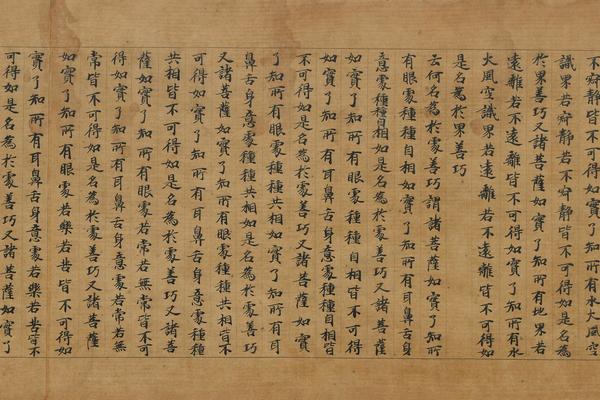 不寂靜皆不可得如實了知所有水火風空
識界若寂靜若不寂靜皆不可得如是名為
於界善巧又諸菩薩如實了知所有地界若
遠離若不遠離皆不可得如實了知所有水
火風空識界若遠離若不遠離皆不可得如
是名為於界善巧
云何名為於處善巧謂諸菩薩如實了知所
有眼處種種自相如實了知所有耳鼻舌身
意處種種自相如是名為於處善巧又諸菩薩
如實了知所有眼處種種自相皆不可得
如實了知所有耳鼻舌身意處種種自相皆
不可得如是名為於處善巧又諸菩薩如實
了知所有眼處種種共相如實了知所有耳
鼻舌身意處種種共相如是名為於處善巧
又諸菩薩如實了知所有眼處種種共相皆不
可得如實了知所有耳鼻舌身意處種種
共相皆不可得如是名為於處善巧又諸菩
薩如實了知所有眼處若常若無常皆不可
得如實了知所有耳鼻舌身意處若常若無
常皆不可得如是名為於處善巧又諸菩薩
如實了知所有眼處若樂若苦皆不可得如
實了知所有耳鼻舌身意處若樂若苦皆不
可得如是名為於處善巧又諸菩薩如實了